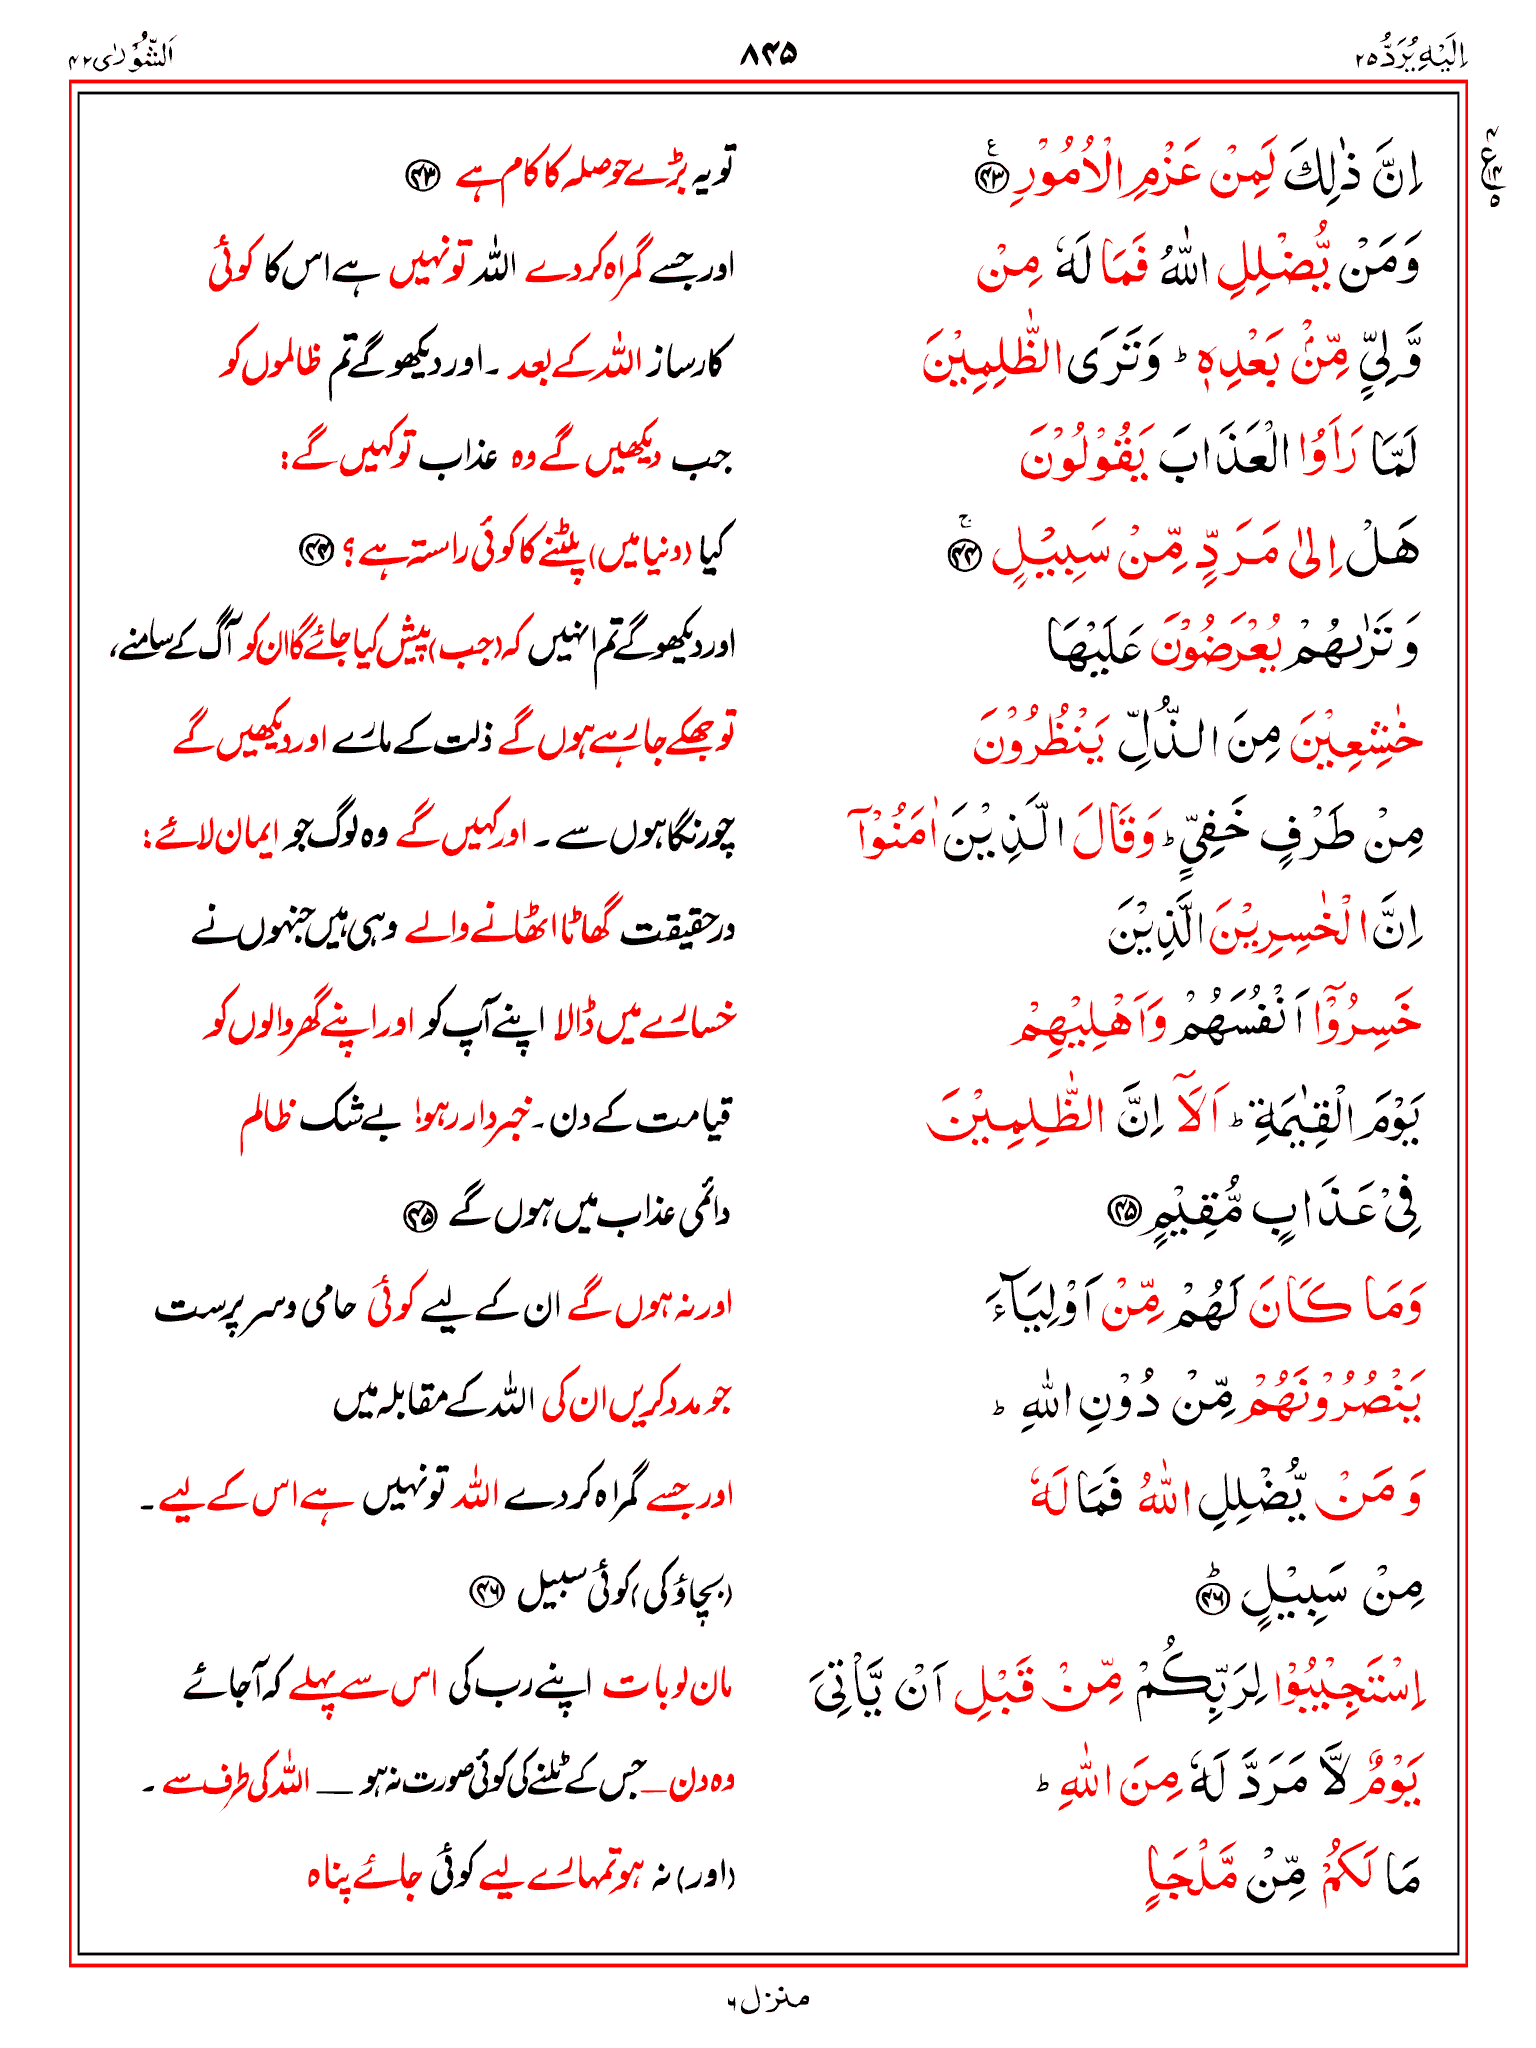 اِلَيْهِ يُرَدُّ ٢٥
٨٤٥
اَلشُّوْرٰى ٤٢
اِنَّ ذٰلِكَ لَمِنْ عَزْمِ الْاُمُوْرِ ﴿۴۳﴾ۧ
تو یہ بڑے حوصلہ کا کام ہے ﴿۴۳﴾
وَمَنْ يُّضْلِلِ اللّٰهُ فَمَا لَهٗ مِنْ
اور جسے گمراہ کردے اللہ تو نہیں ہے اس کا کوئی
وَّلِيٍّ مِّنْۢ بَعْدِهٖ ؕ وَتَرَى الظّٰلِمِيْنَ
کارساز اللہ کے بعد ۔ اور دیکھو گے تم ظالموں کو
لَمَّا رَاَوُا الْعَذَابَ يَقُوْلُوْنَ
جب دیکھیں گے وہ عذاب تو کہیں گے :
هَلْ اِلٰى مَرَدٍّ مِّنْ سَبِيْلٍ ﴿۴۴﴾ۚ
کیا (دنیا میں) پلٹنے کا کوئی راستہ ہے ؟ ﴿۴۴﴾
وَتَرٰىهُمْ يُعْرَضُوْنَ عَلَيْهَا
اور دیکھو گے تم انہیں کہ (جب) پیش کیا جائے گا ان کو آگ کے سامنے،
خٰشِعِيْنَ مِنَ الذُّلِّ يَنْظُرُوْنَ
تو جھکے جا رہے ہوں گے ذلت کے مارے اور دیکھیں گے
مِنْ طَرْفٍ خَفِيٍّ ؕ وَقَالَ الَّذِيْنَ اٰمَنُوْٓا
چور نگاہوں سے ۔ اور کہیں گے وہ لوگ جو ایمان لائے :
اِنَّ الْخٰسِرِيْنَ الَّذِيْنَ
درحقیقت گھاٹا اٹھانے والے وہی ہیں جنہوں نے
خَسِرُوْٓا اَنْفُسَهُمْ وَاَهْلِيْهِمْ
خسارے میں ڈالا اپنے آپ کو اور اپنے گھر والوں کو
يَوْمَ الْقِيٰمَةِ ؕ اَلَآ اِنَّ الظّٰلِمِيْنَ
قیامت کے دن ۔ خبردار رہو! بے شک ظالم
فِيْ عَذَابٍ مُّقِيْمٍ ﴿۴۵﴾
دائمی عذاب میں ہوں گے ﴿۴۵﴾
وَمَا كَانَ لَهُمْ مِّنْ اَوْلِيَآءَ
اور نہ ہوں گے ان کے لیے کوئی حامی و سرپرست
يَنْصُرُوْنَهُمْ مِّنْ دُوْنِ اللّٰهِ ؕ
جو مدد کریں ان کی اللہ کے مقابلہ میں
وَمَنْ يُّضْلِلِ اللّٰهُ فَمَا لَهٗ
اور جسے گمراہ کردے اللہ تو نہیں ہے اس کے لیے ۔
مِنْ سَبِيْلٍ ﴿۴۶﴾ؕ
(بچاؤ کی) کوئی سبیل ﴿۴۶﴾
اِسْتَجِيْبُوْا لِرَبِّكُمْ مِّنْ قَبْلِ اَنْ يَّاْتِيَ
مان لو بات اپنے رب کی اس سے پہلے کہ آ جائے
يَوْمٌ لَّا مَرَدَّ لَهٗ مِنَ اللّٰهِ ؕ
وہ دن — جس کے ٹلنے کی کوئی صورت نہ ہو — اللہ کی طرف سے ۔
مَا لَكُمْ مِّنْ مَّلْجَاٍ
(اور) نہ ہو تمہارے لیے کوئی جائے پناہ
منزل ٦